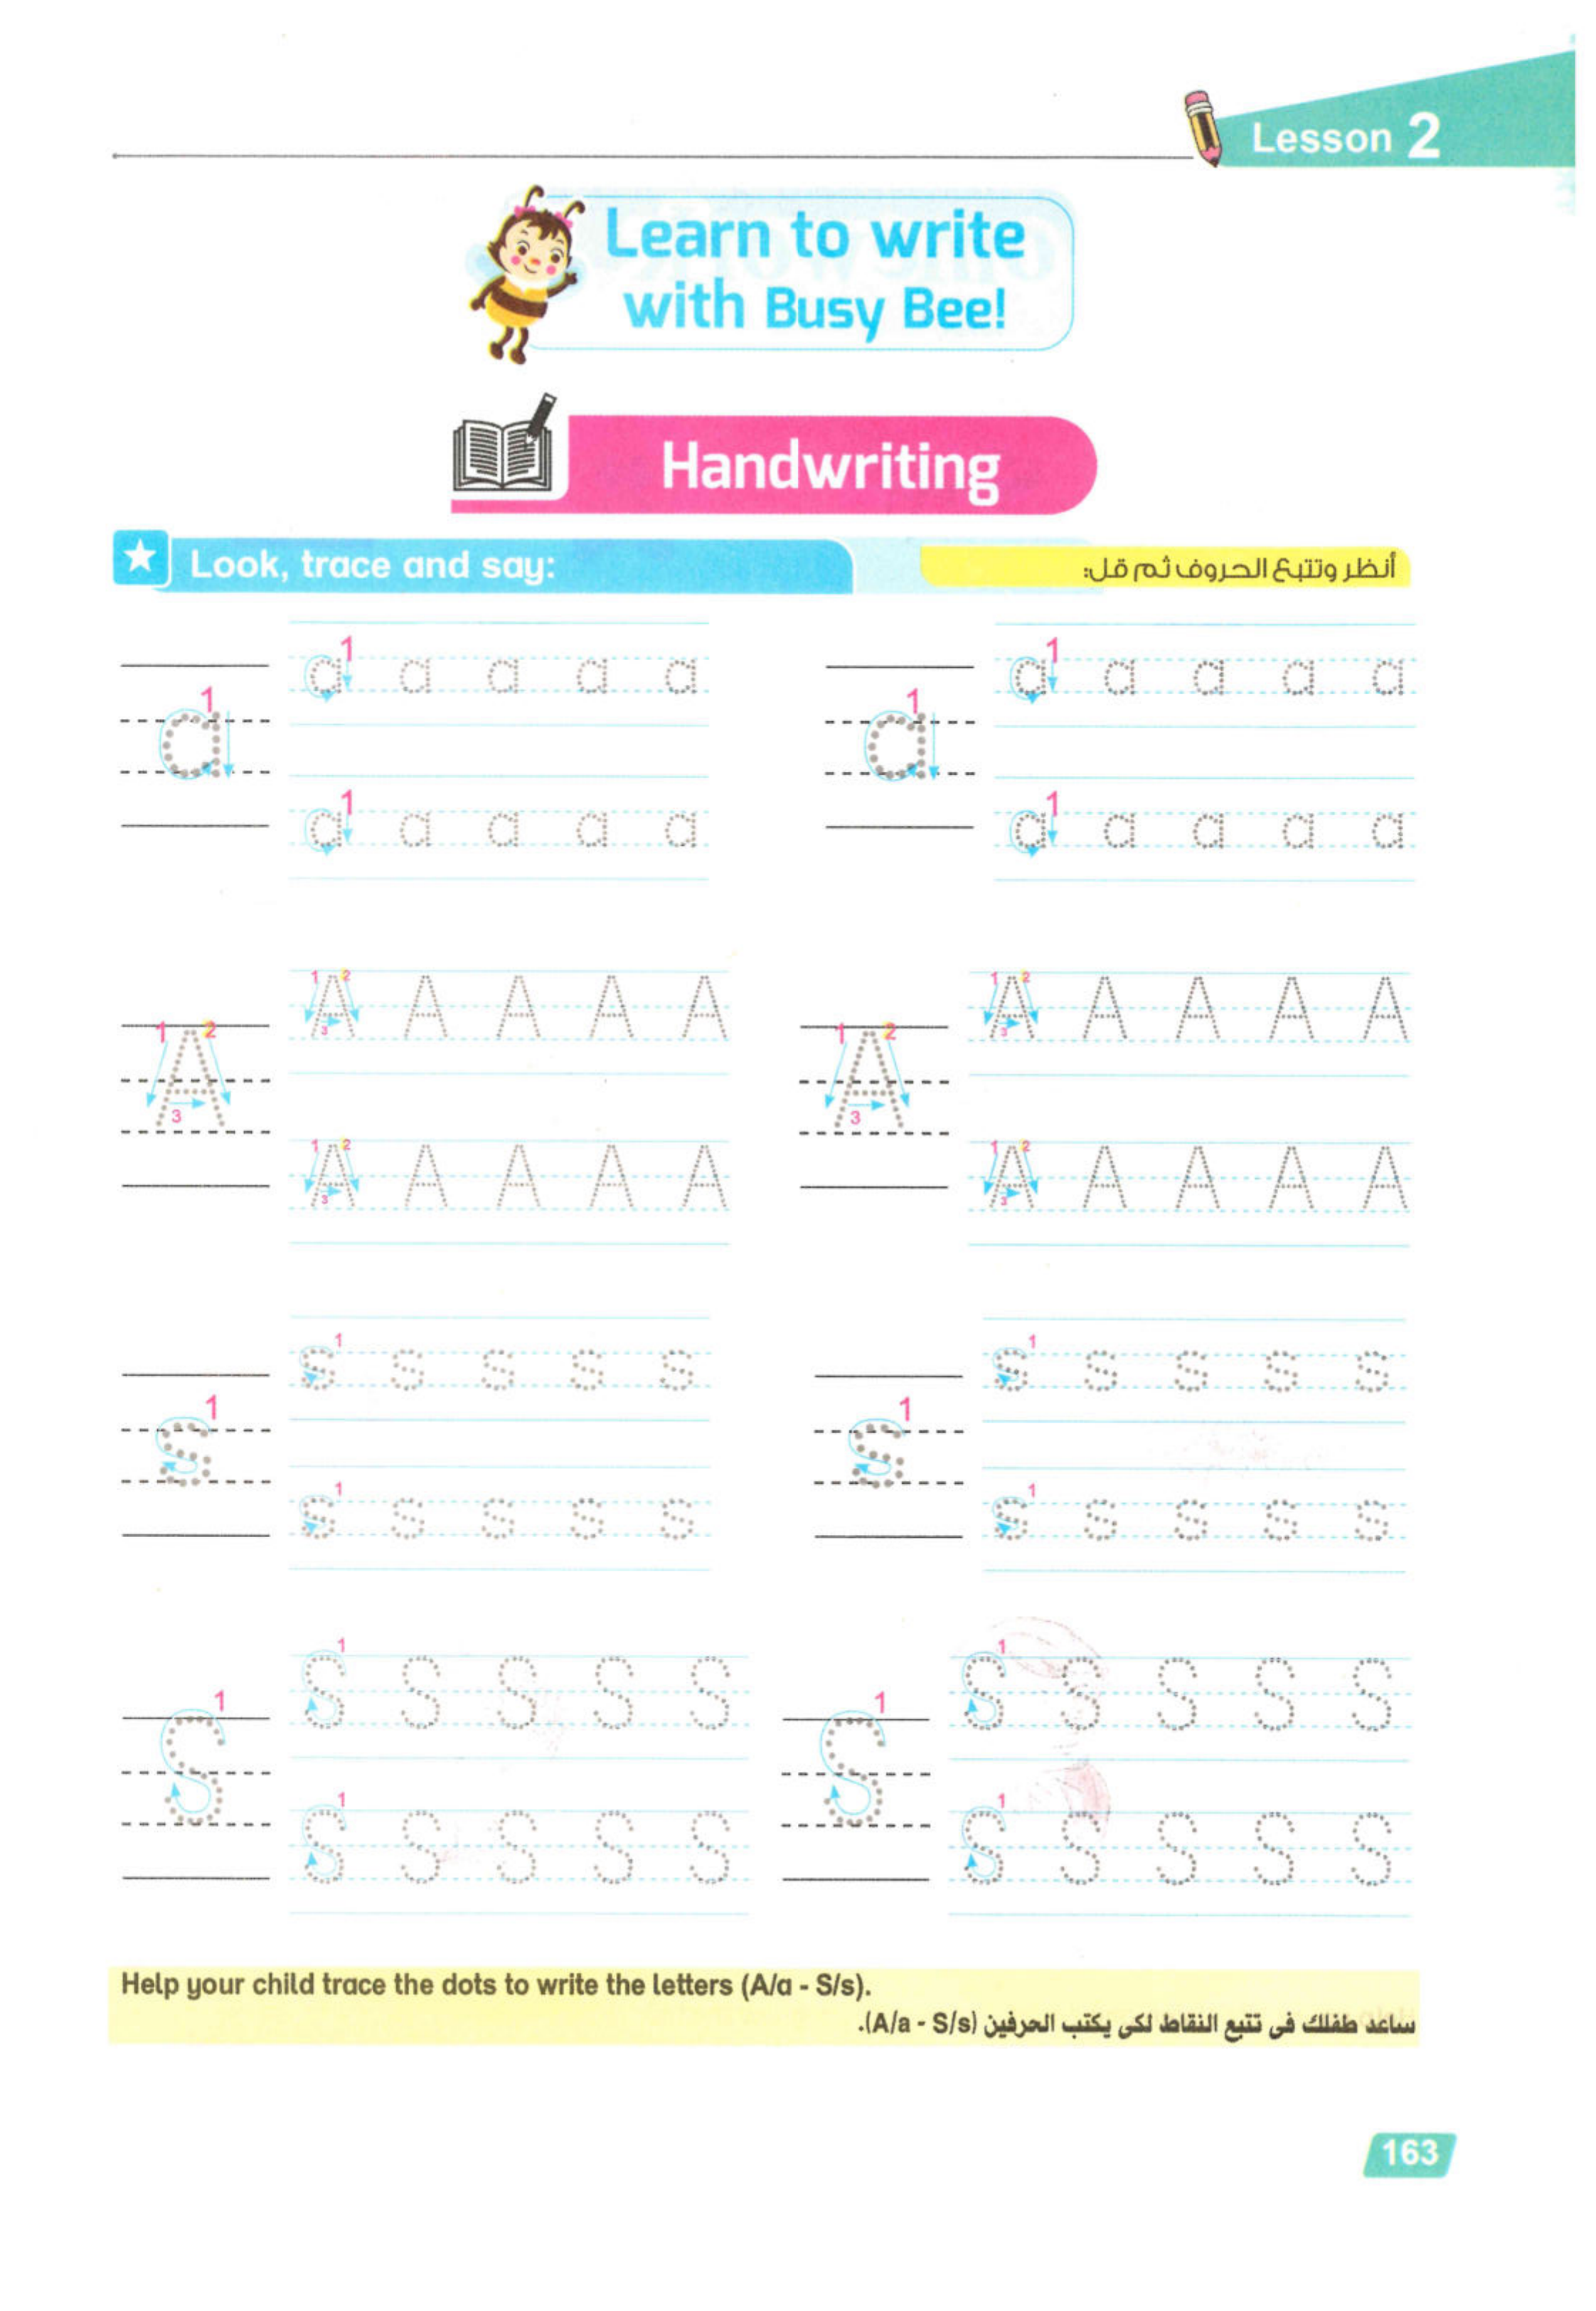 Lesson 2
Learn to write
with Busy Bee!
Handwriting
Look, trace and say:
أنظر وتتبع الحروف ثم قل:
1 a a a a a
1 a a a a a
1 a
1 a
1 a a a a a
1 a a a a a
1 2 3 A A A A A
1 2 3 A A A A A
1 2 3 A
1 2 3 A
1 2 3 A A A A A
1 2 3 A A A A A
1 s s s s s
1 s s s s s
1 s
1 s
1 s s s s s
1 s s s s s
1 S S S S S
1 S S S S S
1 S
1 S
1 S S S S S
1 S S S S S
Help your child trace the dots to write the letters (A/a - S/s).
ساعد طفلك فى تتبع النقاط لكى يكتب الحرفين (A/a - S/s).
163